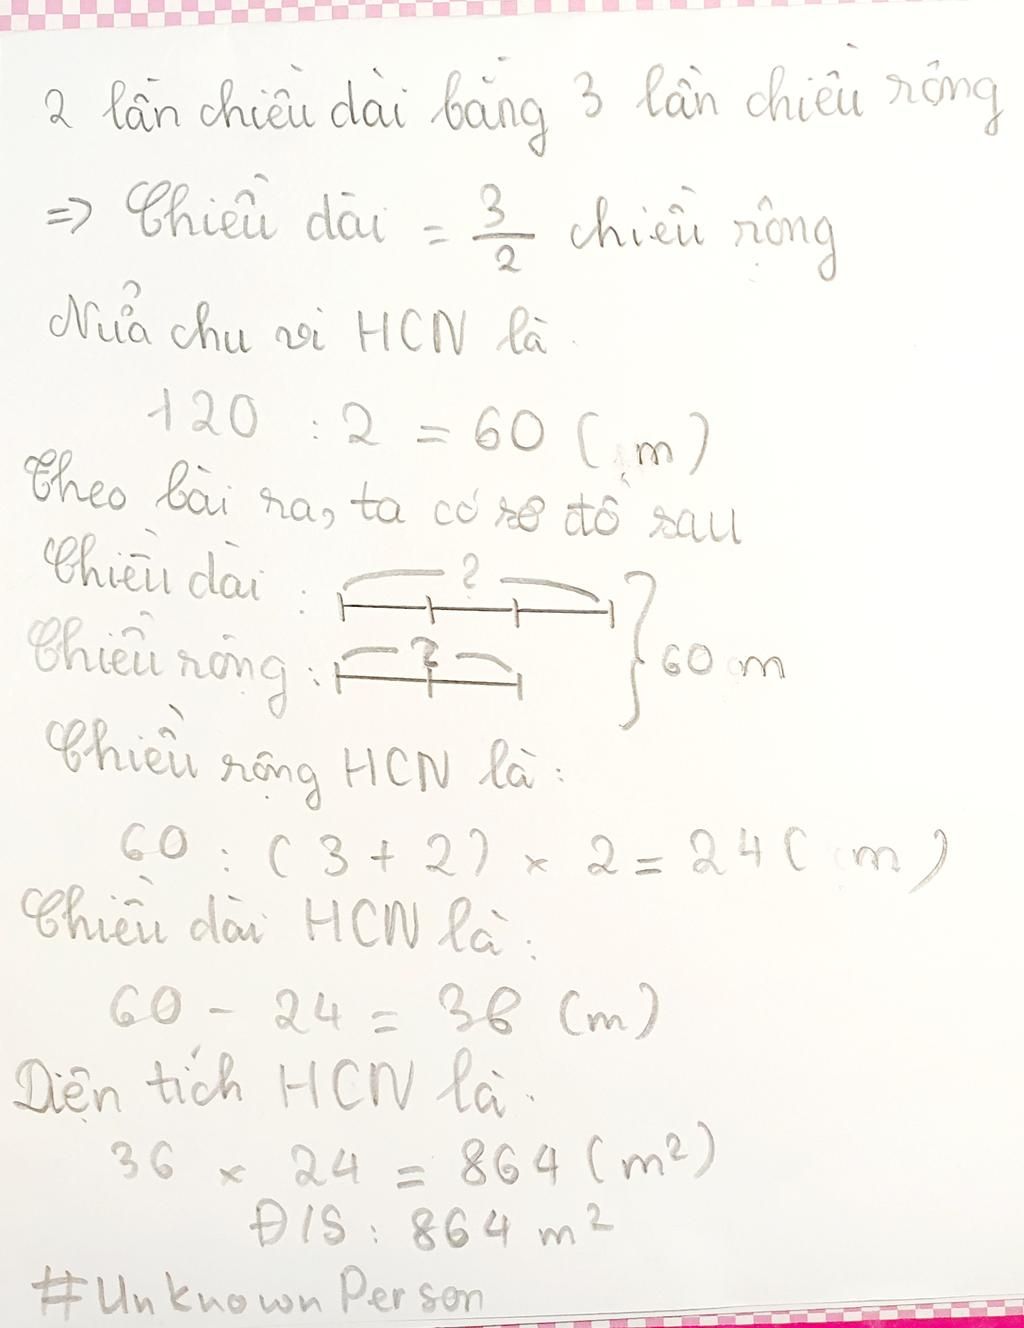 2 lần chiều dài bằng 3 lần chiều rộng
=> Chiều dài = 3/2 chiều rộng
Nửa chu vi HCN là
120 : 2 = 60 (m)
Theo bài ra, ta có sơ đồ sau
Chiều dài : ?
Chiều rộng : ? 60 m
Chiều rộng HCN là :
60 : (3 + 2) × 2 = 24 (m)
Chiều dài HCN là :
60 - 24 = 36 (m)
Diện tích HCN là
36 × 24 = 864 (m²)
Đ/S : 864 m²
#Unknown Person